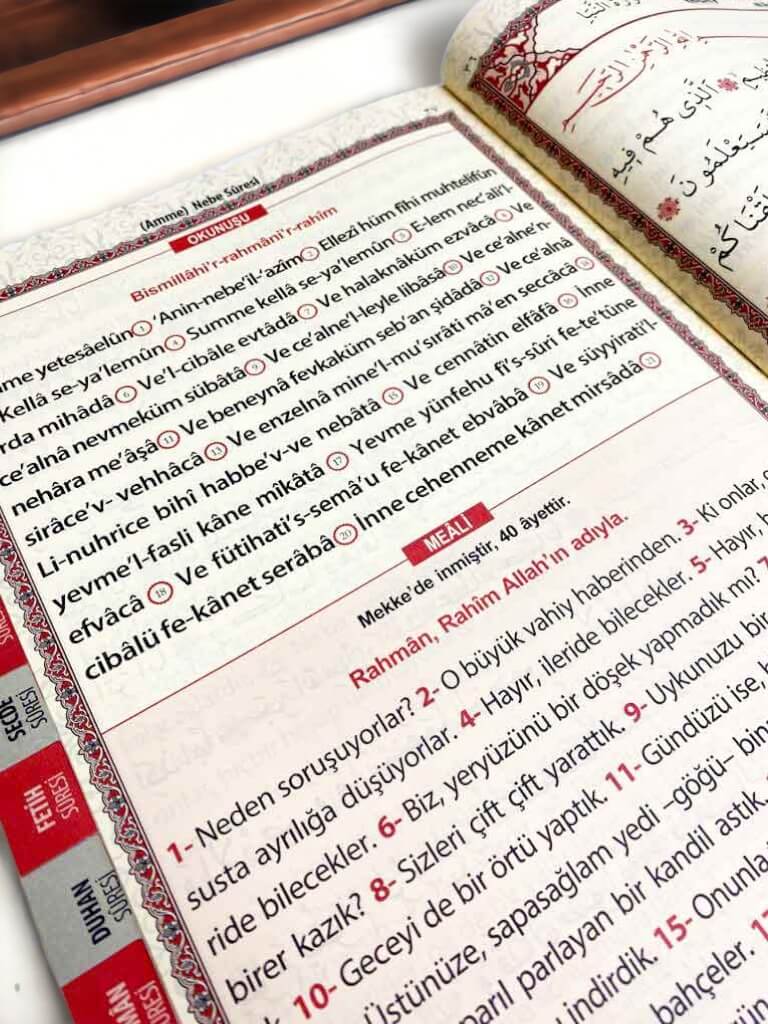 (Amme) Nebe Sûresi
OKUNUŞU
Bismillâhi'r-rahmâni'r-rahim
yetesâelûn 1 'Anin-nebe'il-'azîm 2 Ellezî hüm fîhi muhtelifûn
Kellâ se-ya'lemûn 4 Summe kellâ se-ya'lemûn 5 E-lem nec'ali'l-
mihâdâ 6 Ve'l-cibâle evtâdâ 7 Ve halaknâküm ezvâcâ Ve
ce'alnâ nevmeküm sübâtâ 9 Ve ce'alne'l-leyle libâsâ 10 Ve ce'alne'n-
nehâra me'âşâ 11 Ve beneynâ fevkaküm seb'an şidâdâ 12 Ve ce'alnâ
sirâce'v- vehhâcâ 13 Ve enzelnâ mine'l-mu'sırâti mâ'en seccâcâ 14
Li-nuhrice bihî habbe'v-ve nebâtâ 15 Ve cennâtin elfâfâ 16 İnne
yevme'l-fasli kâne mîkâtâ 17 Yevme yünfehu fi's-sûri fe-te'tûne
efvâcâ 18 Ve fütihati's-semâ'u fe-kânet ebvâbâ 19 Ve süyyirati'l-
cibâlü fe-kânet serâbâ 20 İnne cehenneme kânet mirsâdâ 21
MEÂLİ
Mekke'de inmiştir, 40 âyettir.
Rahmân, Rahîm Allah'ın adıyla.
1- Neden soruşuyorlar? 2- O büyük vahiy haberinden. 3- Ki onlar,
susta ayrılığa düşüyorlar. 4- Hayır, ileride bilecekler. 5- Hayır,
ride bilecekler. 6- Biz, yeryüzünü bir döşek yapmadık mı?
birer kazık? 8- Sizleri çift çift yarattık. 9- Uykunuzu bir
10- Geceyi de bir örtü yaptık. 11- Gündüzü ise,
Üstünüze, sapasağlam yedi –göğü– bin
parlayan bir kandil astık.
indirdik. 15- Onunla
bahçeler.
SECDE
SÛRESİ
FETİH
SÛRESİ
DUHAN
SÛRESİ
SÛRESİ
الَّذِي هُمْ فِيهِ